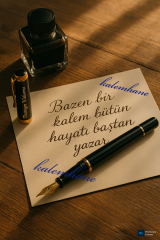 kalemhane
Bazen bir
kalem bütün
hayatı baştan
yazar
kalemhane